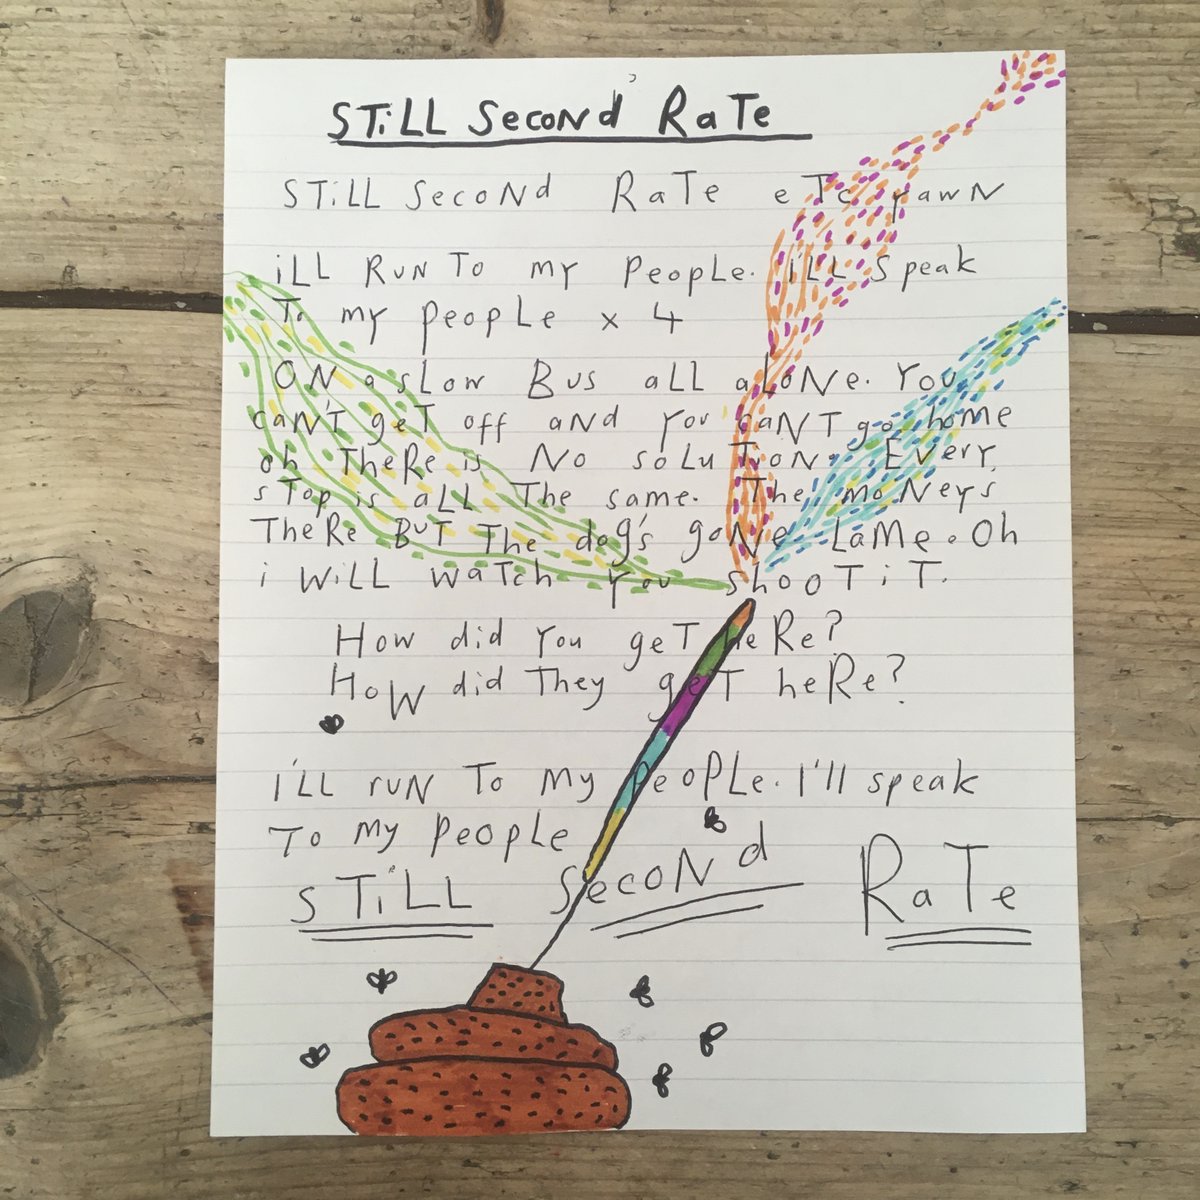 STiLL SecoNd RaTe
STiLL SecoNd RaTe eTc yawN
iLL RuN To my PeoPLe. i'LL Speak
To my PeoPLe x 4
ON a sLow Bus aLL aLoNe. You
caN'T geT off aNd you caNT go home
oh TheRe is No soLuTioN. EVery
sTop is aLL The same. The moNeys
TheRe BuT The dog's goNe Lame. Oh
i WiLL waTch you shooTiT.
How did You geT HeRe?
HoW did They geT heRe?
i'LL ruN To my PeoPLe. I'll speak
To my PeoPLe
STiLL SecoNd RaTe